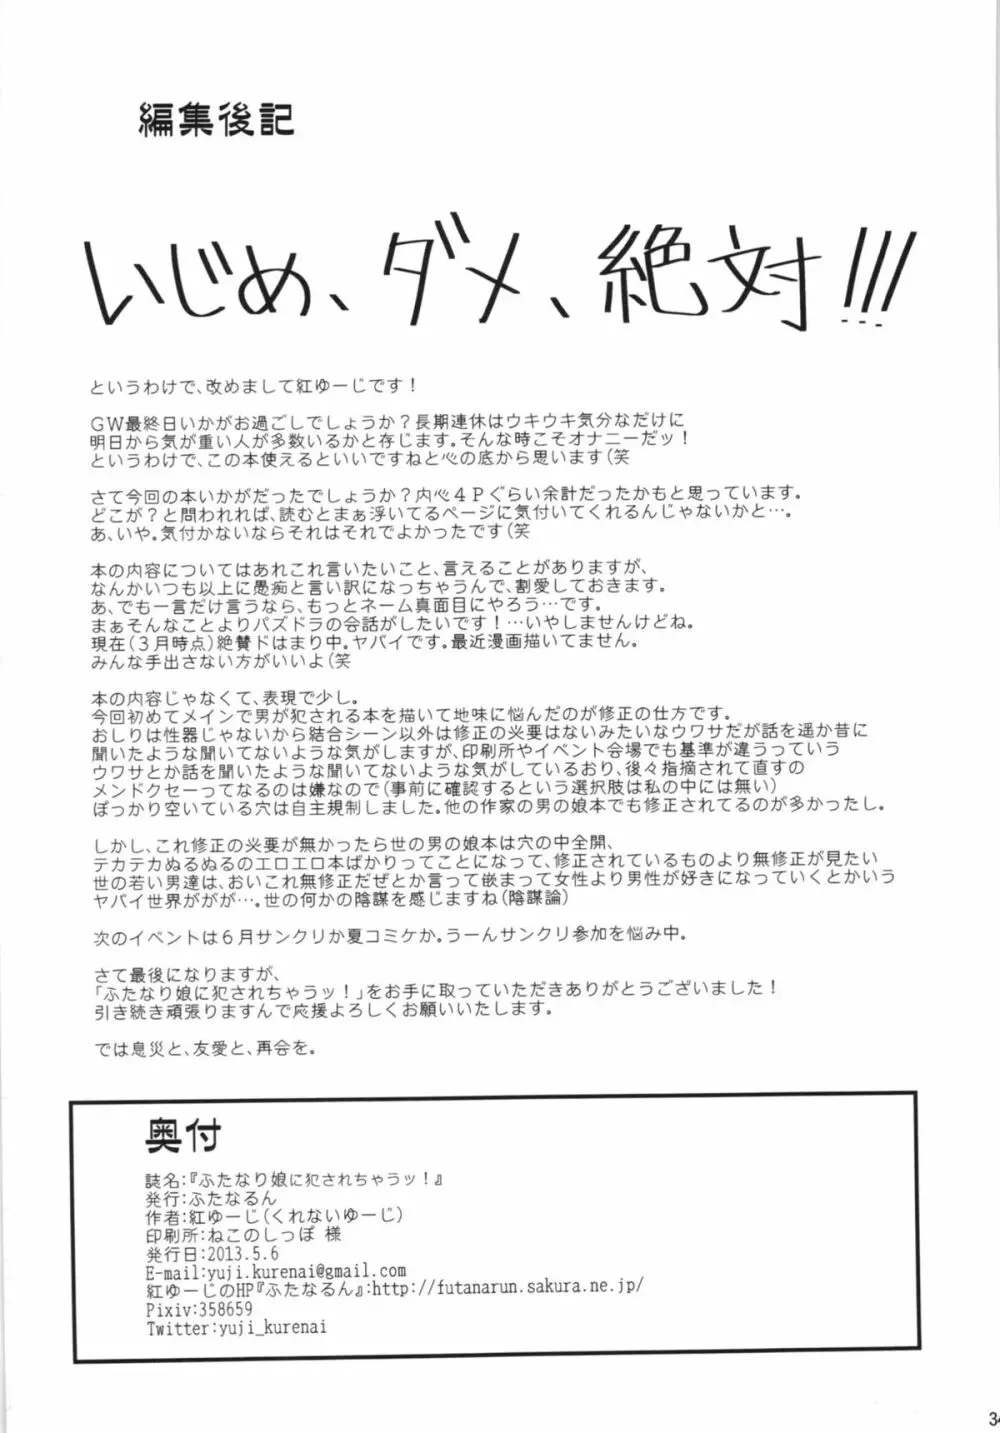 編集後記
いじめ、ダメ、絶対!!!
というわけで、改めまして紅ゆーじです!
GW最終日いかがお過ごしでしょうか?長期連休はウキウキ気分なだけに
明日から気が重い人が多数いるかと存じます。そんな時こそオナニーだッ!
というわけで、この本使えるといいですねと心の底から思います(笑
さて今回の本いかがだったでしょうか?内心4Pぐらい余計だったかもと思っています。
どこが?と問われれば、読むとまぁ浮いてるページに気付いてくれるんじゃないかと…。
あ、いや。気付かないならそれはそれでよかったです(笑
本の内容についてはあれこれ言いたいこと、言えることがありますが、
なんかいつも以上に愚痴と言い訳になっちゃうんで、割愛しておきます。
あ、でも一言だけ言うなら、もっとネーム真面目にやろう…です。
まぁそんなことよりパズドラの会話がしたいです!…いやしませんけどね。
現在(3月時点)絶賛ドはまり中。ヤバイです。最近漫画描いてません。
みんな手出さない方がいいよ(笑
本の内容じゃなくて、表現で少し。
今回初めてメインで男が犯される本を描いて地味に悩んだのが修正の仕方です。
おしりは性器じゃないから結合シーン以外は修正の必要はないみたいなウワサだか話を遥か昔に
聞いたような聞いてないような気がしますが、印刷所やイベント会場でも基準が違うっていう
ウワサとか話を聞いたような聞いてないような気がしているおり、後々指摘されて直すの
メンドクセーってなるのは嫌なので(事前に確認するという選択肢は私の中には無い)
ぽっかり空いている穴は自主規制しました。他の作家の男の娘本でも修正されてるのが多かったし。
しかし、これ修正の必要が無かったら世の男の娘本は穴の中全開、
テカテカぬるぬるのエロエロ本ばかりってことになって、修正されているものより無修正が見たい
世の若い男達は、おいこれ無修正だぜとか言って嵌まって女性より男性が好きになっていくとかいう
ヤバイ世界ががが…。世の何かの陰謀を感じますね(陰謀論)
次のイベントは6月サンクリか夏コミケか。うーんサンクリ参加を悩み中。
さて最後になりますが、
「ふたなり娘に犯されちゃうッ!」をお手に取っていただきありがとうございました!
引き続き頑張りますんで応援よろしくお願いいたします。
では息災と、友愛と、再会を。
奥付
誌名:『ふたなり娘に犯されちゃうッ!』
発行:ふたなるん
作者:紅ゆーじ(くれないゆーじ)
印刷所:ねこのしっぽ 様
発行日:2013.5.6
E-mail:yuji.kurenai@gmail.com
紅ゆーじのHP『ふたなるん』:http://futanarun.sakura.ne.jp/
Pixiv:358659
Twitter:yuji_kurenai
34